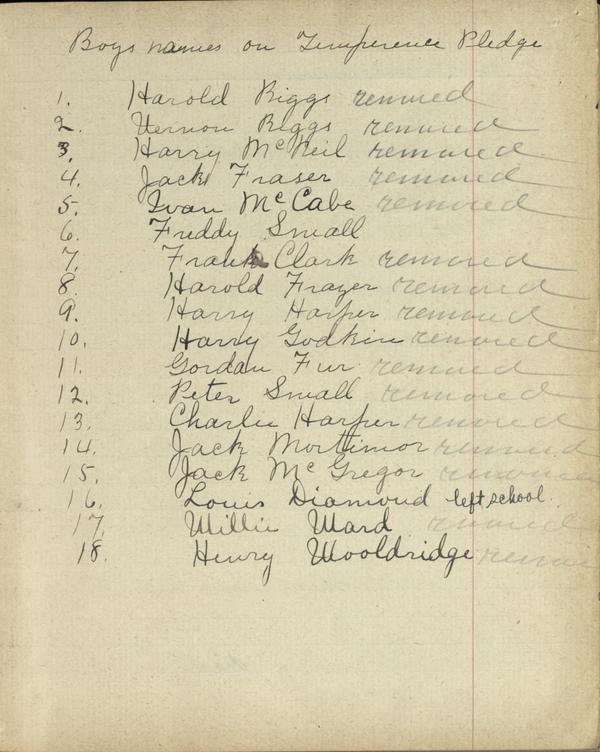 Boys names on Temperence Pledge
1. Harold Biggs removed
2. Vernon Biggs removed
3. Harry McNeil removed
4. Jack Fraser removed
5. Ivan McCabe removed
6. Freddy Small
7. Frank Clark removed
8. Harold Frazer removed
9. Harry Harper removed
10. Harry Godkin removed
11. Gordan Fur removed
12. Peter Small removed
13. Charlie Harper removed
14. Jack Morttimor removed
15. Jack McGregor removed
16. Louis Diamond left school.
17. Willie Ward removed
18. Henry Wooldridge remove